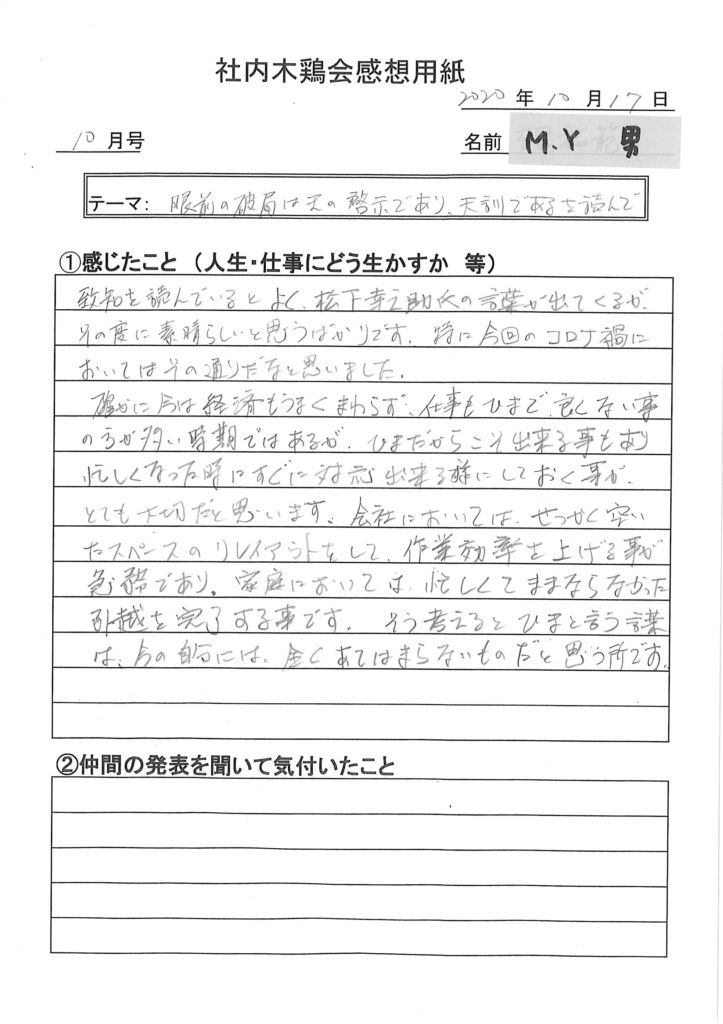 社内木鶏会感想用紙
2020 年 10 月 17 日
10 月号
名前 M.Y 男
テーマ： 眼前の破局は天の啓示であり、天訓であるを読んで
①感じたこと （人生・仕事にどう生かすか 等）
致知を読んでいるとよく、松下幸之助氏の言葉が出てくるが、
その度に素晴らしいと思うばかりです。特に今回のコロナ禍に
おいてはその通りだなと思いました。
確かに今は経済もうまくまわらず、仕事もひまで、良くない事
の方が多い時期ではあるが、ひまだからこそ出来る事もあり
忙しくなった時にすぐに対応出来る様にしておく事が、
とても大切だと思います。会社においては、せっかく空い
たスペースのリレイアウトをして、作業効率を上げる事が
急務であり。家庭においては、忙しくてままならなかった
引越を完了する事です。そう考えるとひまと言う言葉
は、今の自分には、全くあてはまらないものだと思う所です。
②仲間の発表を聞いて気付いたこと